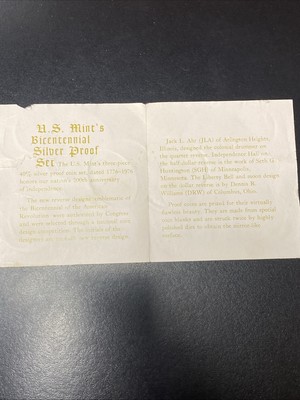 U.S. Mint's
Bicentennial
Silver Proof
Set The U.S. Mint's three-piece
40% silver proof coin set, dated 1776-1976
honors our nation's 200th anniversary
of independence.
The new reverse designs emblematic of
the Bicentennial of the American
Revolution were authorized by Congress
and were selected through a national coin
design competition. The initials of the
designers are on the reverse design.
Jack L. Ahr (JLA) of Arlington Heights,
Illinois, designed the colonial drummer on
the quarter reverse. Independence Hall on
the half-dollar reverse is the work of Seth G.
Huntington (SGH) of Minneapolis,
Minnesota. The Liberty Bell and moon design
on the dollar reverse is by Dennis R.
Williams (DRW) of Columbus, Ohio.
Proof coins are prized for their virtually
flawless beauty. They are made from special
coin blanks and are struck twice by highly
polished dies to obtain the mirror-like
surfaces.